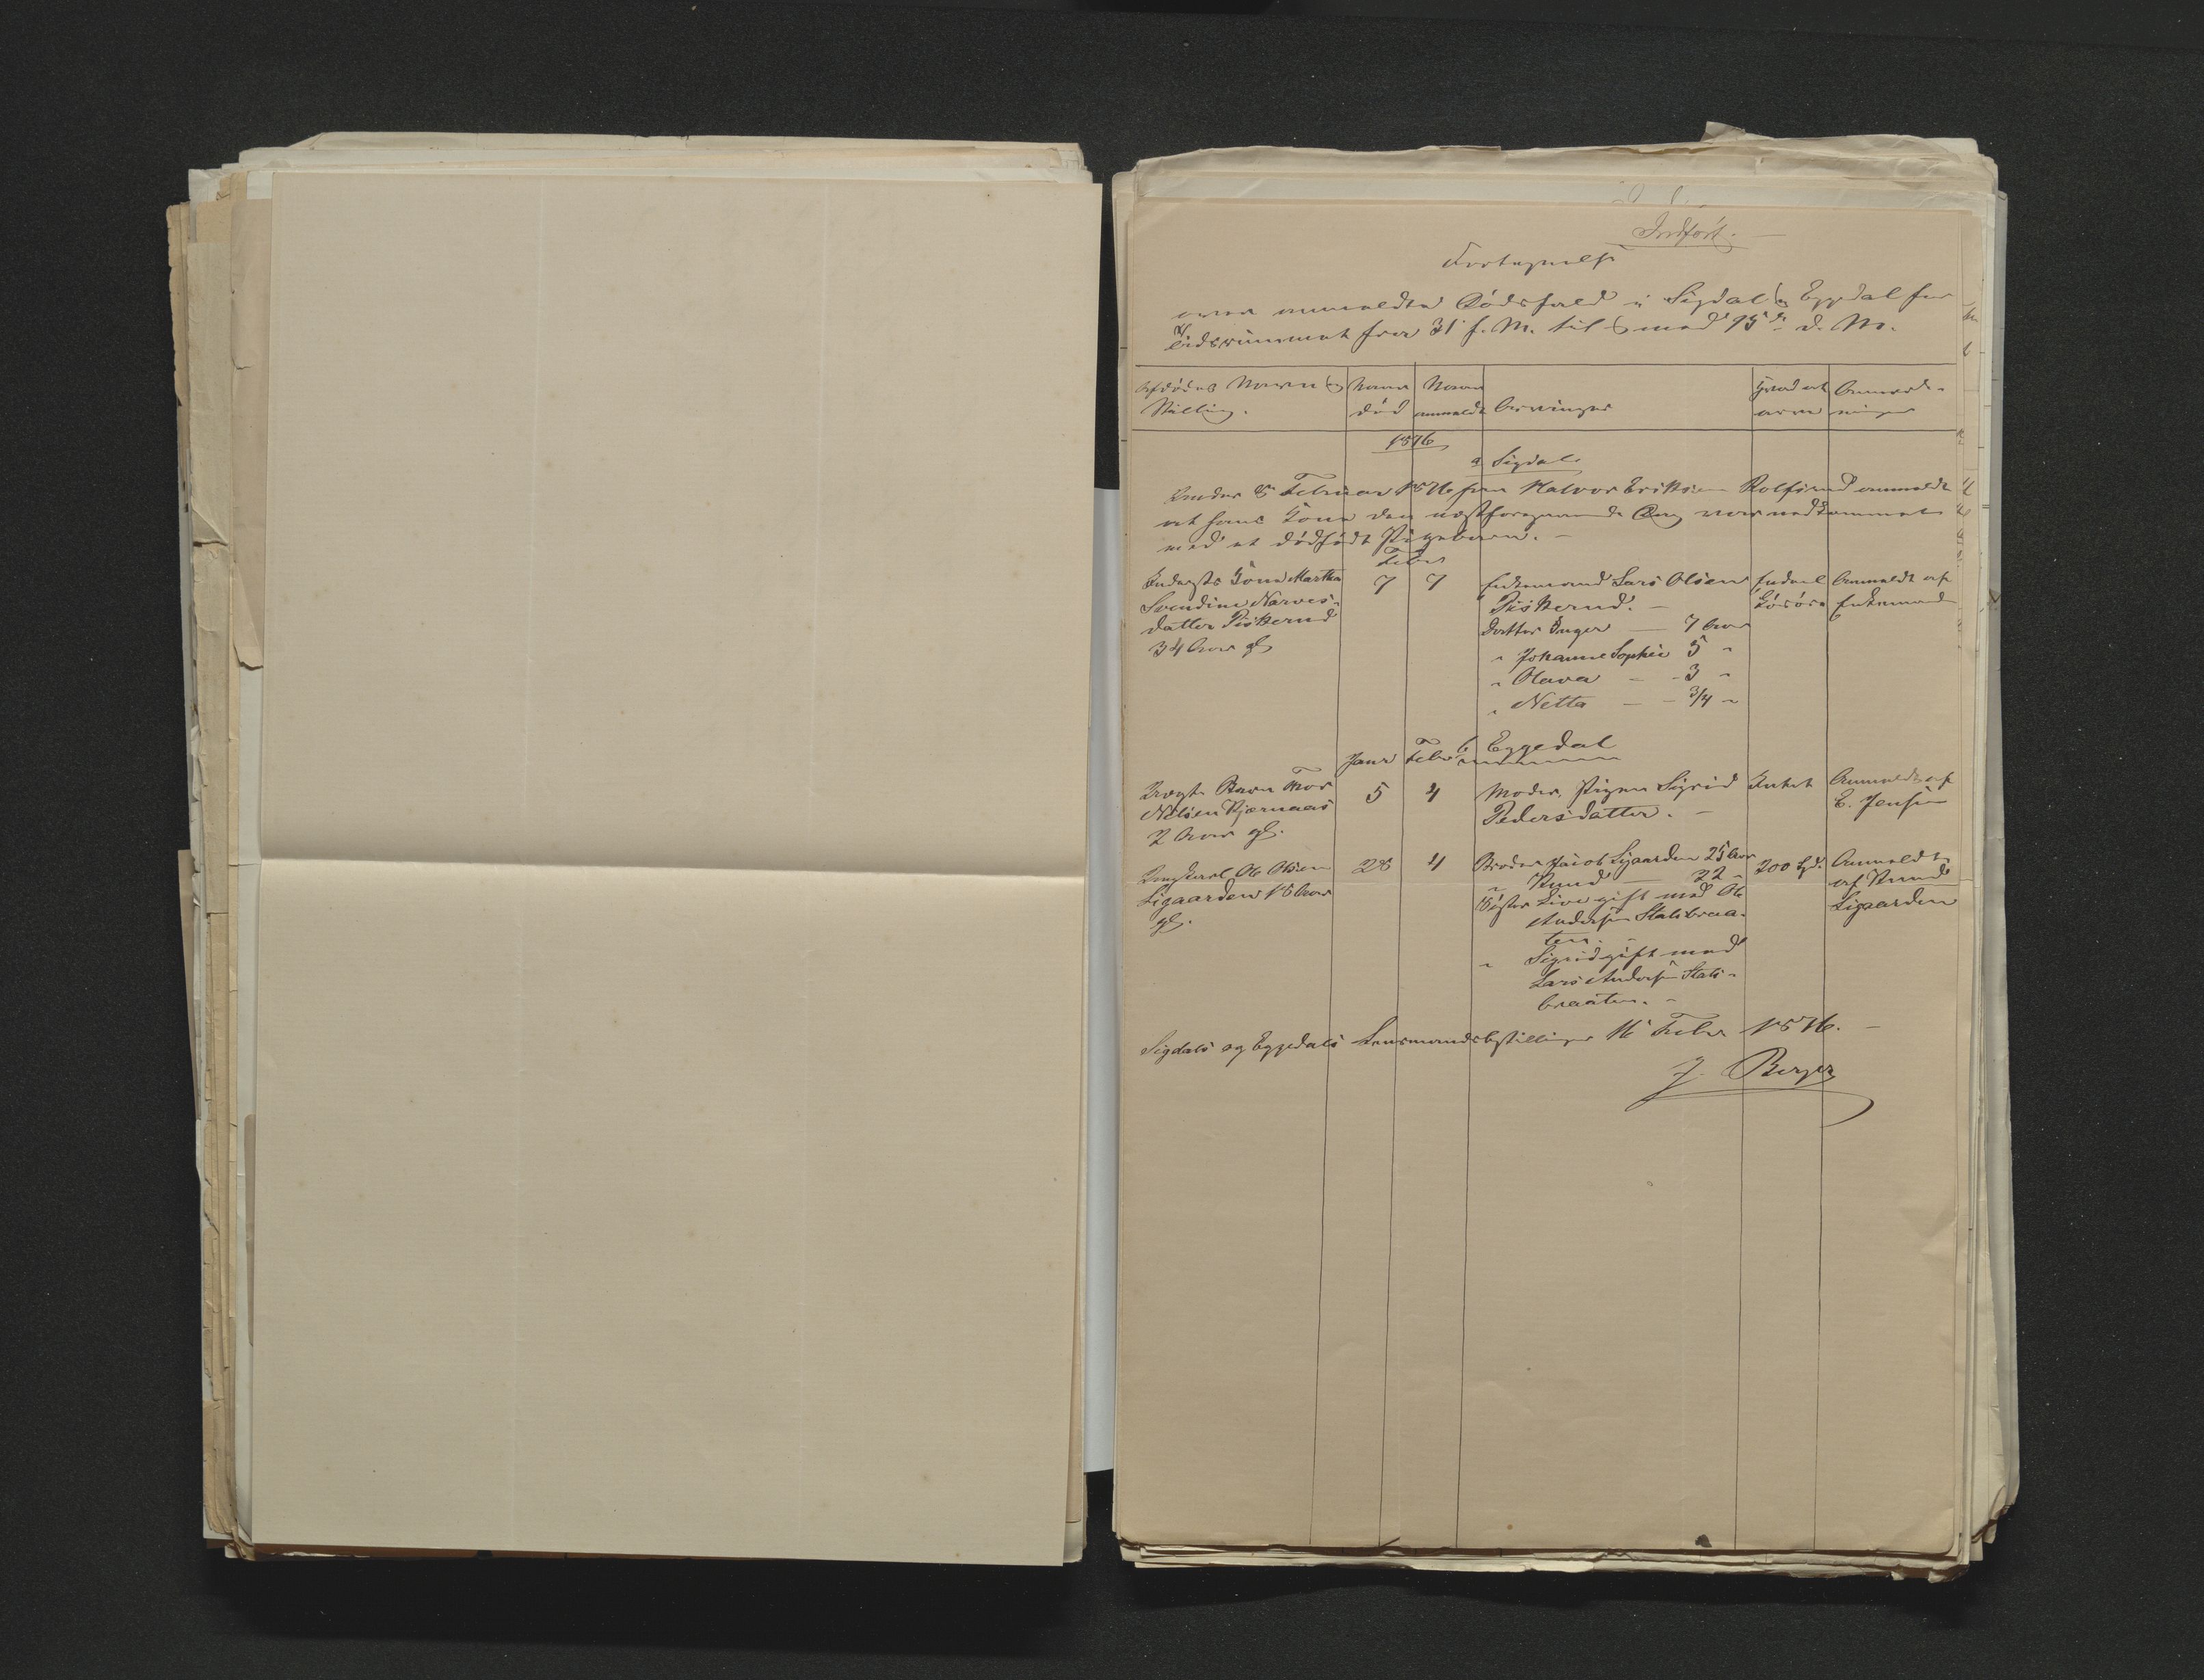 Indført.
Fortegnelse
over anmeldte Dødsfald i Sigdal og Eggedal for
Tidsrummet fra 31 f. M. til og med 15de d. M.
Afdødes Navn og Stilling.
Naar død
Naar anmeldt
Arvinger
Hvad at arve
Anmærkninger
1876
a Sigdal
Under 8 Februar 1876 har Halvor Eriksen Rolfsrud anmeldt
at hans Kone den næstforegaaende Dag var nedkommet
med et dødfødt Pigebarn. —
Febr
Inderste Kone Martha
Svendine Narves-
datter Piskerud
34 Aar gl
7
7
Enkemand Lars Olsen
Piskerud. —
Datter Inger — 7 Aar
" Johanne Sophie 5 "
" Olava — 3 "
" Netta — 3/4 "
Endeel
Løsøre
Anmeldt af
Enkemand
b Eggedal
Janr Febr
Uægte Barn Thor
Nilsen Kjærnaas
2 Aar gl.
5
4
Moder, Pigen Sigrid
Pedersdatter. —
Intet
Anmeldt af
E. Jensen
Ungkarl Ole Olsen
Ligaarden 18 Aar
gl.
28
4
Broder Jacob Ligaarden 25 Aar
" Knud — 22 "
Søster Live gift med Ole
Andersen Stalsbraa-
ten. "
" Sigrid gift med
Lars Andersen Stals-
braaten. "
200 Spd.
Anmeldt
af Knud
Ligaarden
Sigdals og Eggedals Lensmandsbestilling 16 Febr 1876. —
J. Berger